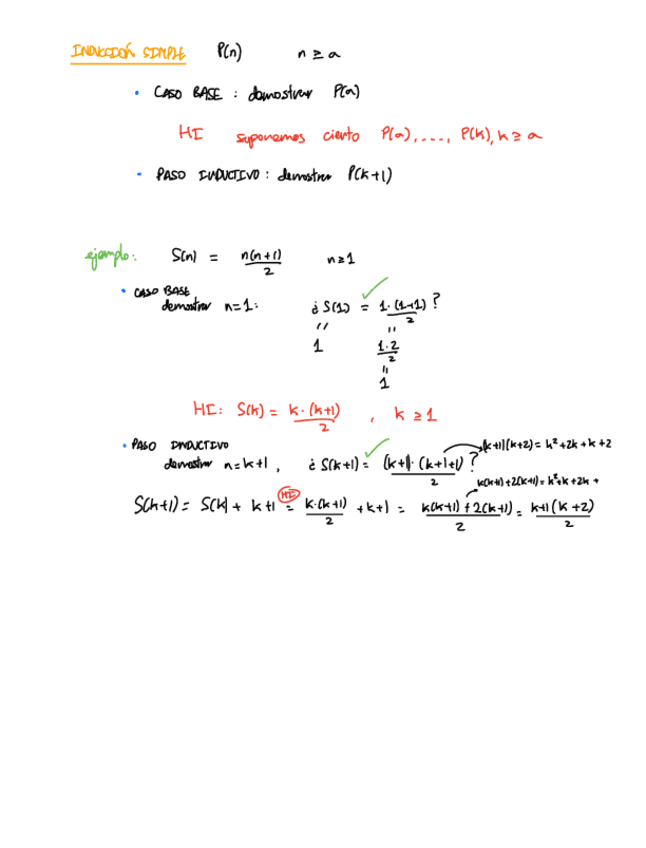 INDUCCIÓN SIMPLE P(n) n ≥ a
• CASO BASE : demostrar P(a)
HI suponemos cierto P(a), ...., P(k), k ≥ a
• PASO INDUCTIVO : demostrar P(k+1)
ejemplo: S(n) = n(n+1)/2 n≥1
• CASO BASE
demostrar n=1: ¿ S(1) = 1·(1+1)/2 ?
" "
1 1·2/2
"
1
HI: S(k) = k·(k+1)/2 , k ≥ 1
• PASO INDUCTIVO (k+1)(k+2) = k²+2k+k+2
demostrar n=k+1, ¿ S(k+1) = (k+1)·(k+1+1)/2 ?
k(k+1)+2(k+1) = k²+k+2k+
S(k+1) = S(k) + k+1 =(HI) k·(k+1)/2 + k+1 = k(k+1)+2(k+1)/2 = k+1(k+2)/2